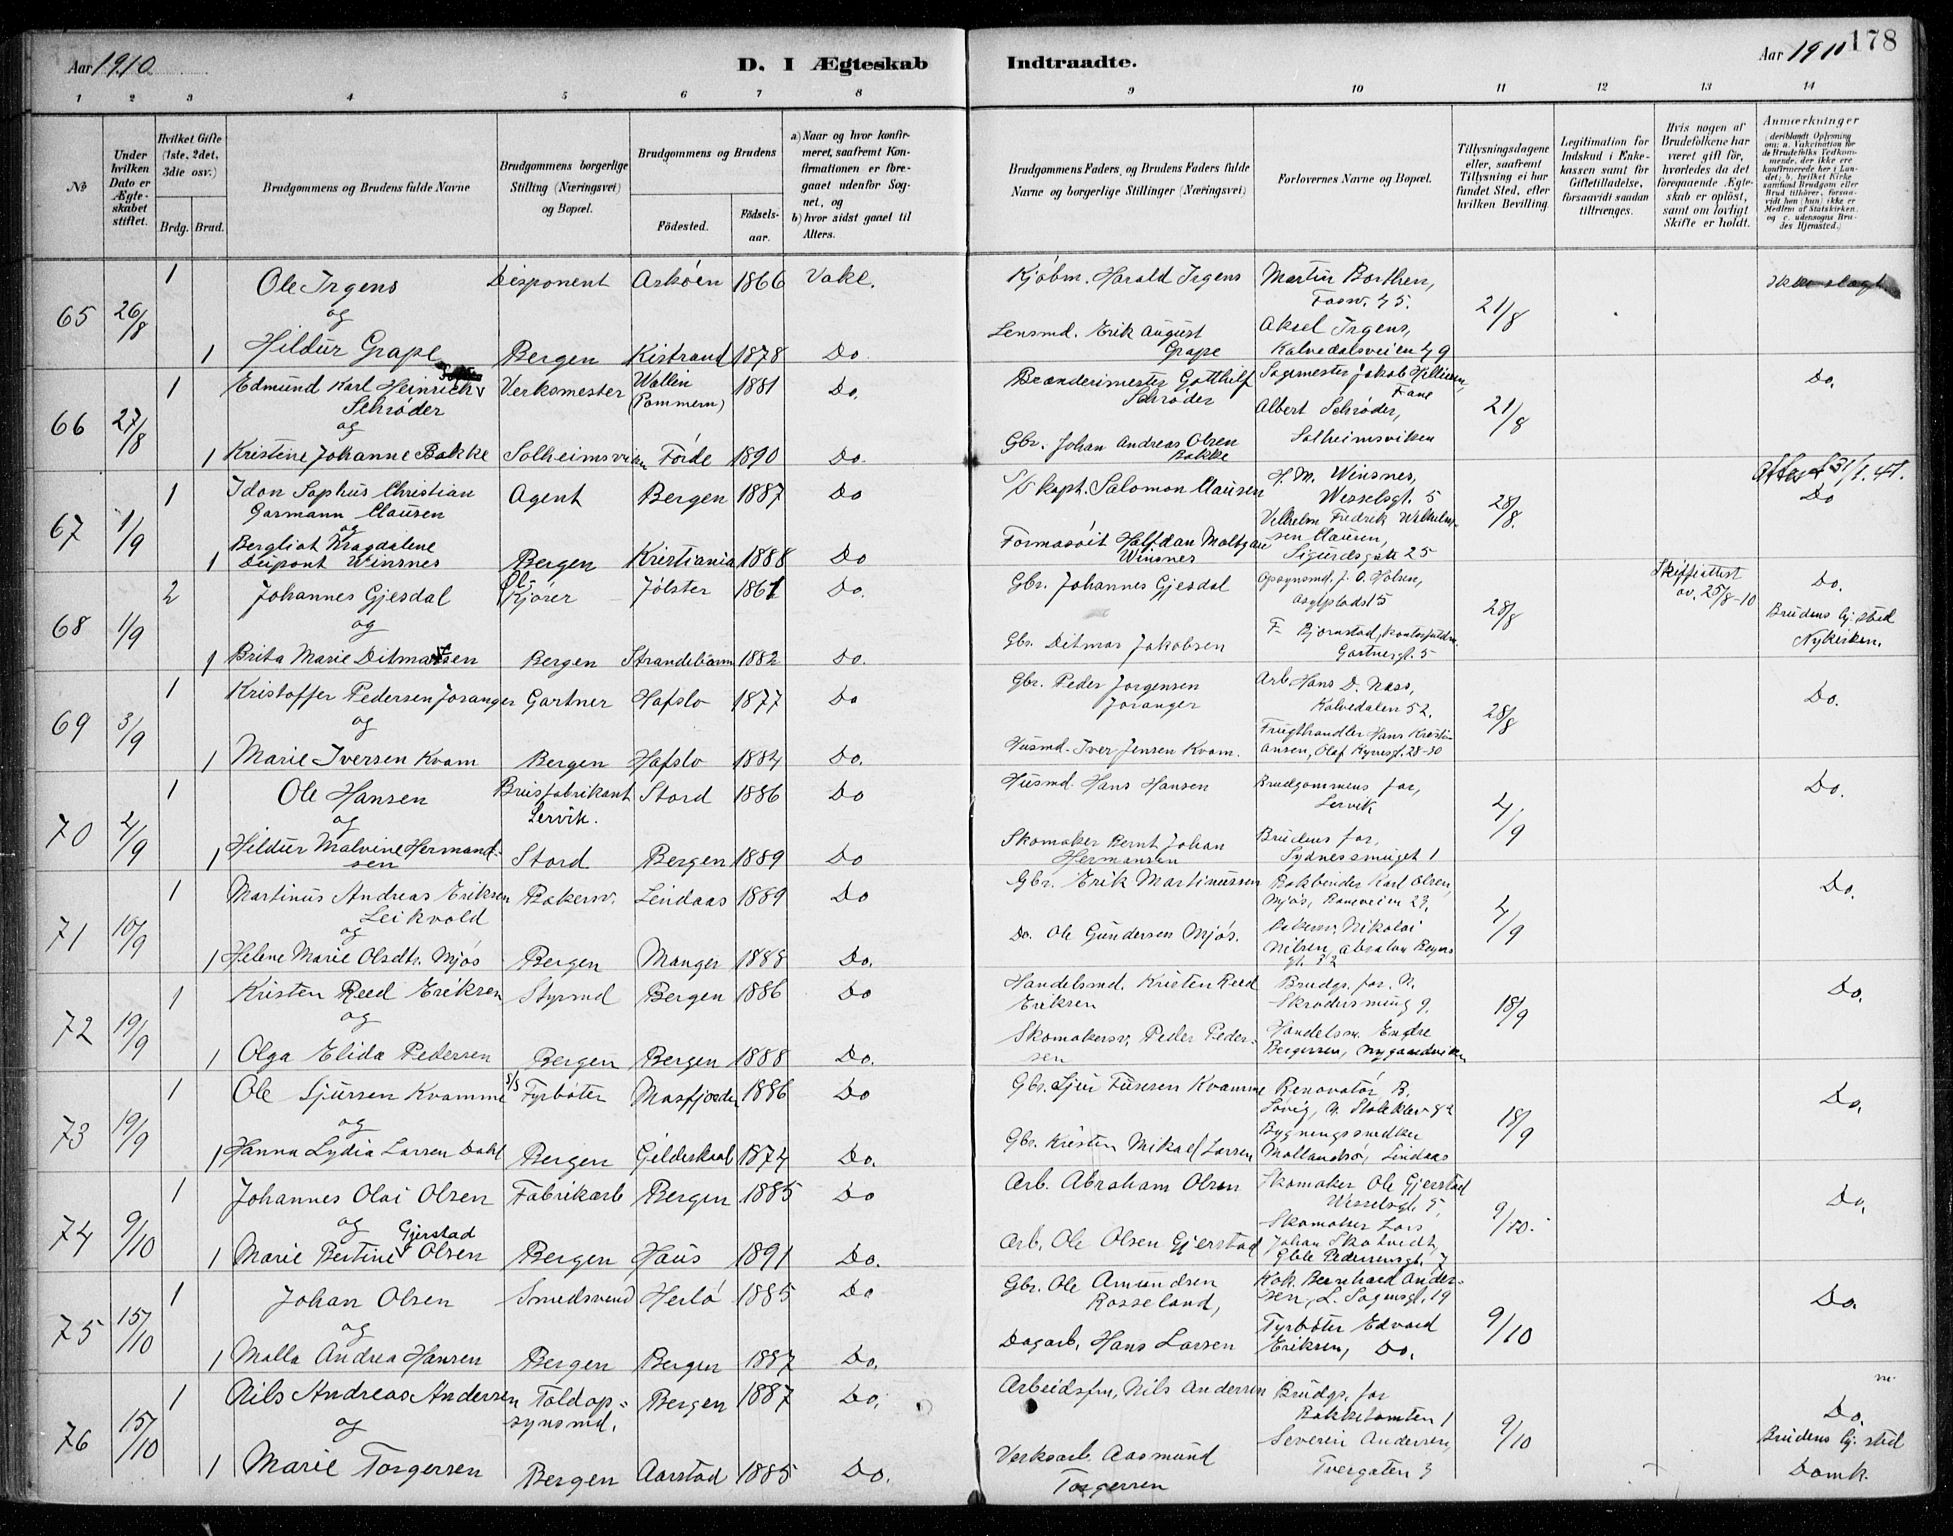 Aar 1910
D. I Ægteskab Indtraadte.
Aar 1910
178
1 2 3 4 5 6 7 8 9 10 11 12 13 14
№
Under hvilken Dato er Ægteskabet stiftet.
Hvilket Gifte (1ste, 2det, 3die osv.)
Brdg. Brud.
Brudgommens og Brudens fulde Navne
Brudgommens borgerlige Stilling (Næringsvei) og Bopæl.
Brudgommens og Brudens
Fødested.
Fødselsaar.
a) Naar og hvor konfirmeret, saafremt Konfirmationen er foregaaet udenfor Sognet, og
b) hvor sidst gaaet til Alters.
Brudgommens Faders, og Brudens Faders fulde Navne og borgerlige Stillinger (Næringsvei)
Forlovernes Navne og Bopæl.
Tillysningsdagene eller, saafremt Tillysning ei har fundet Sted, efter hvilken Bevilling.
Legitimation for Indskud i Enkekassen samt for Giftetilladelse, forsaavidt saadan tiltrænges.
Hvis nogen af Brudefolkene har været gift før, hvorledes da det foregaaende Ægteskab er opløst, samt om lovligt Skifte er holdt.
Anmærkninger (deriblandt Oplysning om: a. Vakcination for de Brudefolks Vedkommende, der ikke ere konfirmerede her i Landet; b. hvilket Kirkesamfund Brudgom eller Brud tilhører, forsaavidt han (hun) ikke er Medlem af Statskirken, og c. udensogns Brudes Hjemsted.)
65 26/8 1 Ole Irgens Disponent Askøen 1866 Vakc. Kjøbm. Harald Irgens Martin Borthen, 21/8 Ikke slægt
og Fosw. 45.
Lensmd. Erik August Aksel Irgens,
1 Hildur Grape Bergen Kistrand 1878 Do. Grape Kalvedalsveien 49
66 27/8 1 Edmund Karl Heinrich Verksmester Wollin 1881 Do. Brænderimester Gotthilf Sagmester Jakob 21/8 Do.
Schrøder (Pommern) Schrøder Fane
og Albert Schrøder,
Gbr. Johan Andreas Olsen Solheimsviken
1 Kristine Johanne Bakke Solheimsviken Førde 1890 Do. Bakke
67 1/9 1 Idon Sophus Christian Agent Bergen 1887 Do S/S kapt. Salomon Clausen H. M. Winsnes, 28/8 31/1.41.
Garmann Clausen Wesselsgt. 5 Do
og Vilhelm Fredrik Wilhelm-
Bergliot Magdalene Halfdan Moltzau sen Clausen,
1 Dupont Winsnes Bergen Kristiania 1888 Do Winsnes Sigurdsgate 25
68 1/9 2 Johannes Gjesdal Kjører Jølster 1861 Do. Gbr. Johannes Gjesdal Opsynsmd. J. O. Holsen, 28/8 Skifteattest Do.
og Asylplads 15 av. 25/8-10 Brudens sted
F. Bjørnstad, Nykirken.
1 Brita Marie Ditmarsen Bergen Strandebarm 1882 Do. Gbr. Ditmar Jakobsen Gartnergt. 5
69 3/9 1 Kristoffer Pedersen Joranger Gartner Hafslo 1877 Do Gbr. Peder Jørgensen Arb. Hans D. Næss, 28/8 Do.
og Joranger Kalvedalen 52.
Frugthandler Hans Kristi-
1 Marie Iversen Kvam Bergen Hafslo 1884 Do. Husmd. Iver Jensen Kvam. ansen, Olaf Kyrresgt. 28-30
70 4/9 1 Ole Hansen Brusfabrikant Stord 1886 Do Husmd. Hans Hansen Brudgommens far, 4/9 Do.
og Lervik. Lervik
Hildur Malvine Hermand- Skomaker Bernt Johan Brudens far,
1 sen Stord Bergen 1889 Do Hermansen Sydnessmuget 1
71 10/9 1 Martinus Andreas Eriksen Bakersv. Lindaas 1889 Do Gbr. Erik Martinussen Bokbinder Karl Olsen, 4/9 Do.
Leikvold Mjøs,
og Bakersv. Nikolai
1 Helene Marie Olsdtr. Mjøs Bergen Manger 1888 Do. Do. Ole Gundersen Mjøs. Nilsen, Absalon Beyers
gt. 32
72 19/9 1 Kristen Reed Eriksen Styrmd Bergen 1886 Do Handelsmd. Kristen Reed Brudgs. far. N. 18/9 Do.
og Eriksen Skrædersmug 9.
Skomakersv. Peder Peder- Handelsm. Endre
1 Olga Elida Pedersen Bergen Bergen 1888 Do. sen Bergersen, Nygaardsviken
73 19/9 1 Ole Sjursen Kvamme S/S Fyrbøter Masfjorden 1886 Do Gbr. Sjur Kvamme Renovatør B. 18/9 Do.
og Løvig, N. Stølekleven 42
Bygningssnedker
1 Hanna Lydia Larsen Dahl Bergen Gildeskaal 1874 Do. Gbr. Kristen Mikael Larsen Lindaas
74 9/10 1 Johannes Olai Olsen Fabrikarb Bergen 1885 Do Arb. Abraham Olsen Skomaker Ole Gjerstad 9/10. Do.
og Gjerstad Wesselsgt. 5,
Skomaker Lars
1 Marie Bertine Olsen Bergen Haus 1891 Do. Arb. Ole Olsen Gjerstad Johan Skotvedt,
Gable Pedersensgt. 7
75 15/10 1 Johan Olsen Smedsvend Herlø 1885 Do Gbr. Ole Amundsen Kok. Bernhard Ander- 9/10 Do.
og Rosseland, sen, L. Sagensgt. 19
Fyrbøter Edvard
1 Malla Andrea Hansen Bergen Bergen 1887 Do. Dagarb. Hans Larsen Eriksen, Do.
76 15/10 1 Nils Andreas Andersen Toldop- Bergen 1887 Do. Arbeidsfm. Nils Andersen Brudgs. far 9/10 Do.
og synsmd. Bakketomten 1 Brudens sted
Severin Andersen, Domk.
1 Marie Torgersen Bergen Aarstad 1885 Do. Verksarb. Aasmund Tvergaten 3
Torgersen